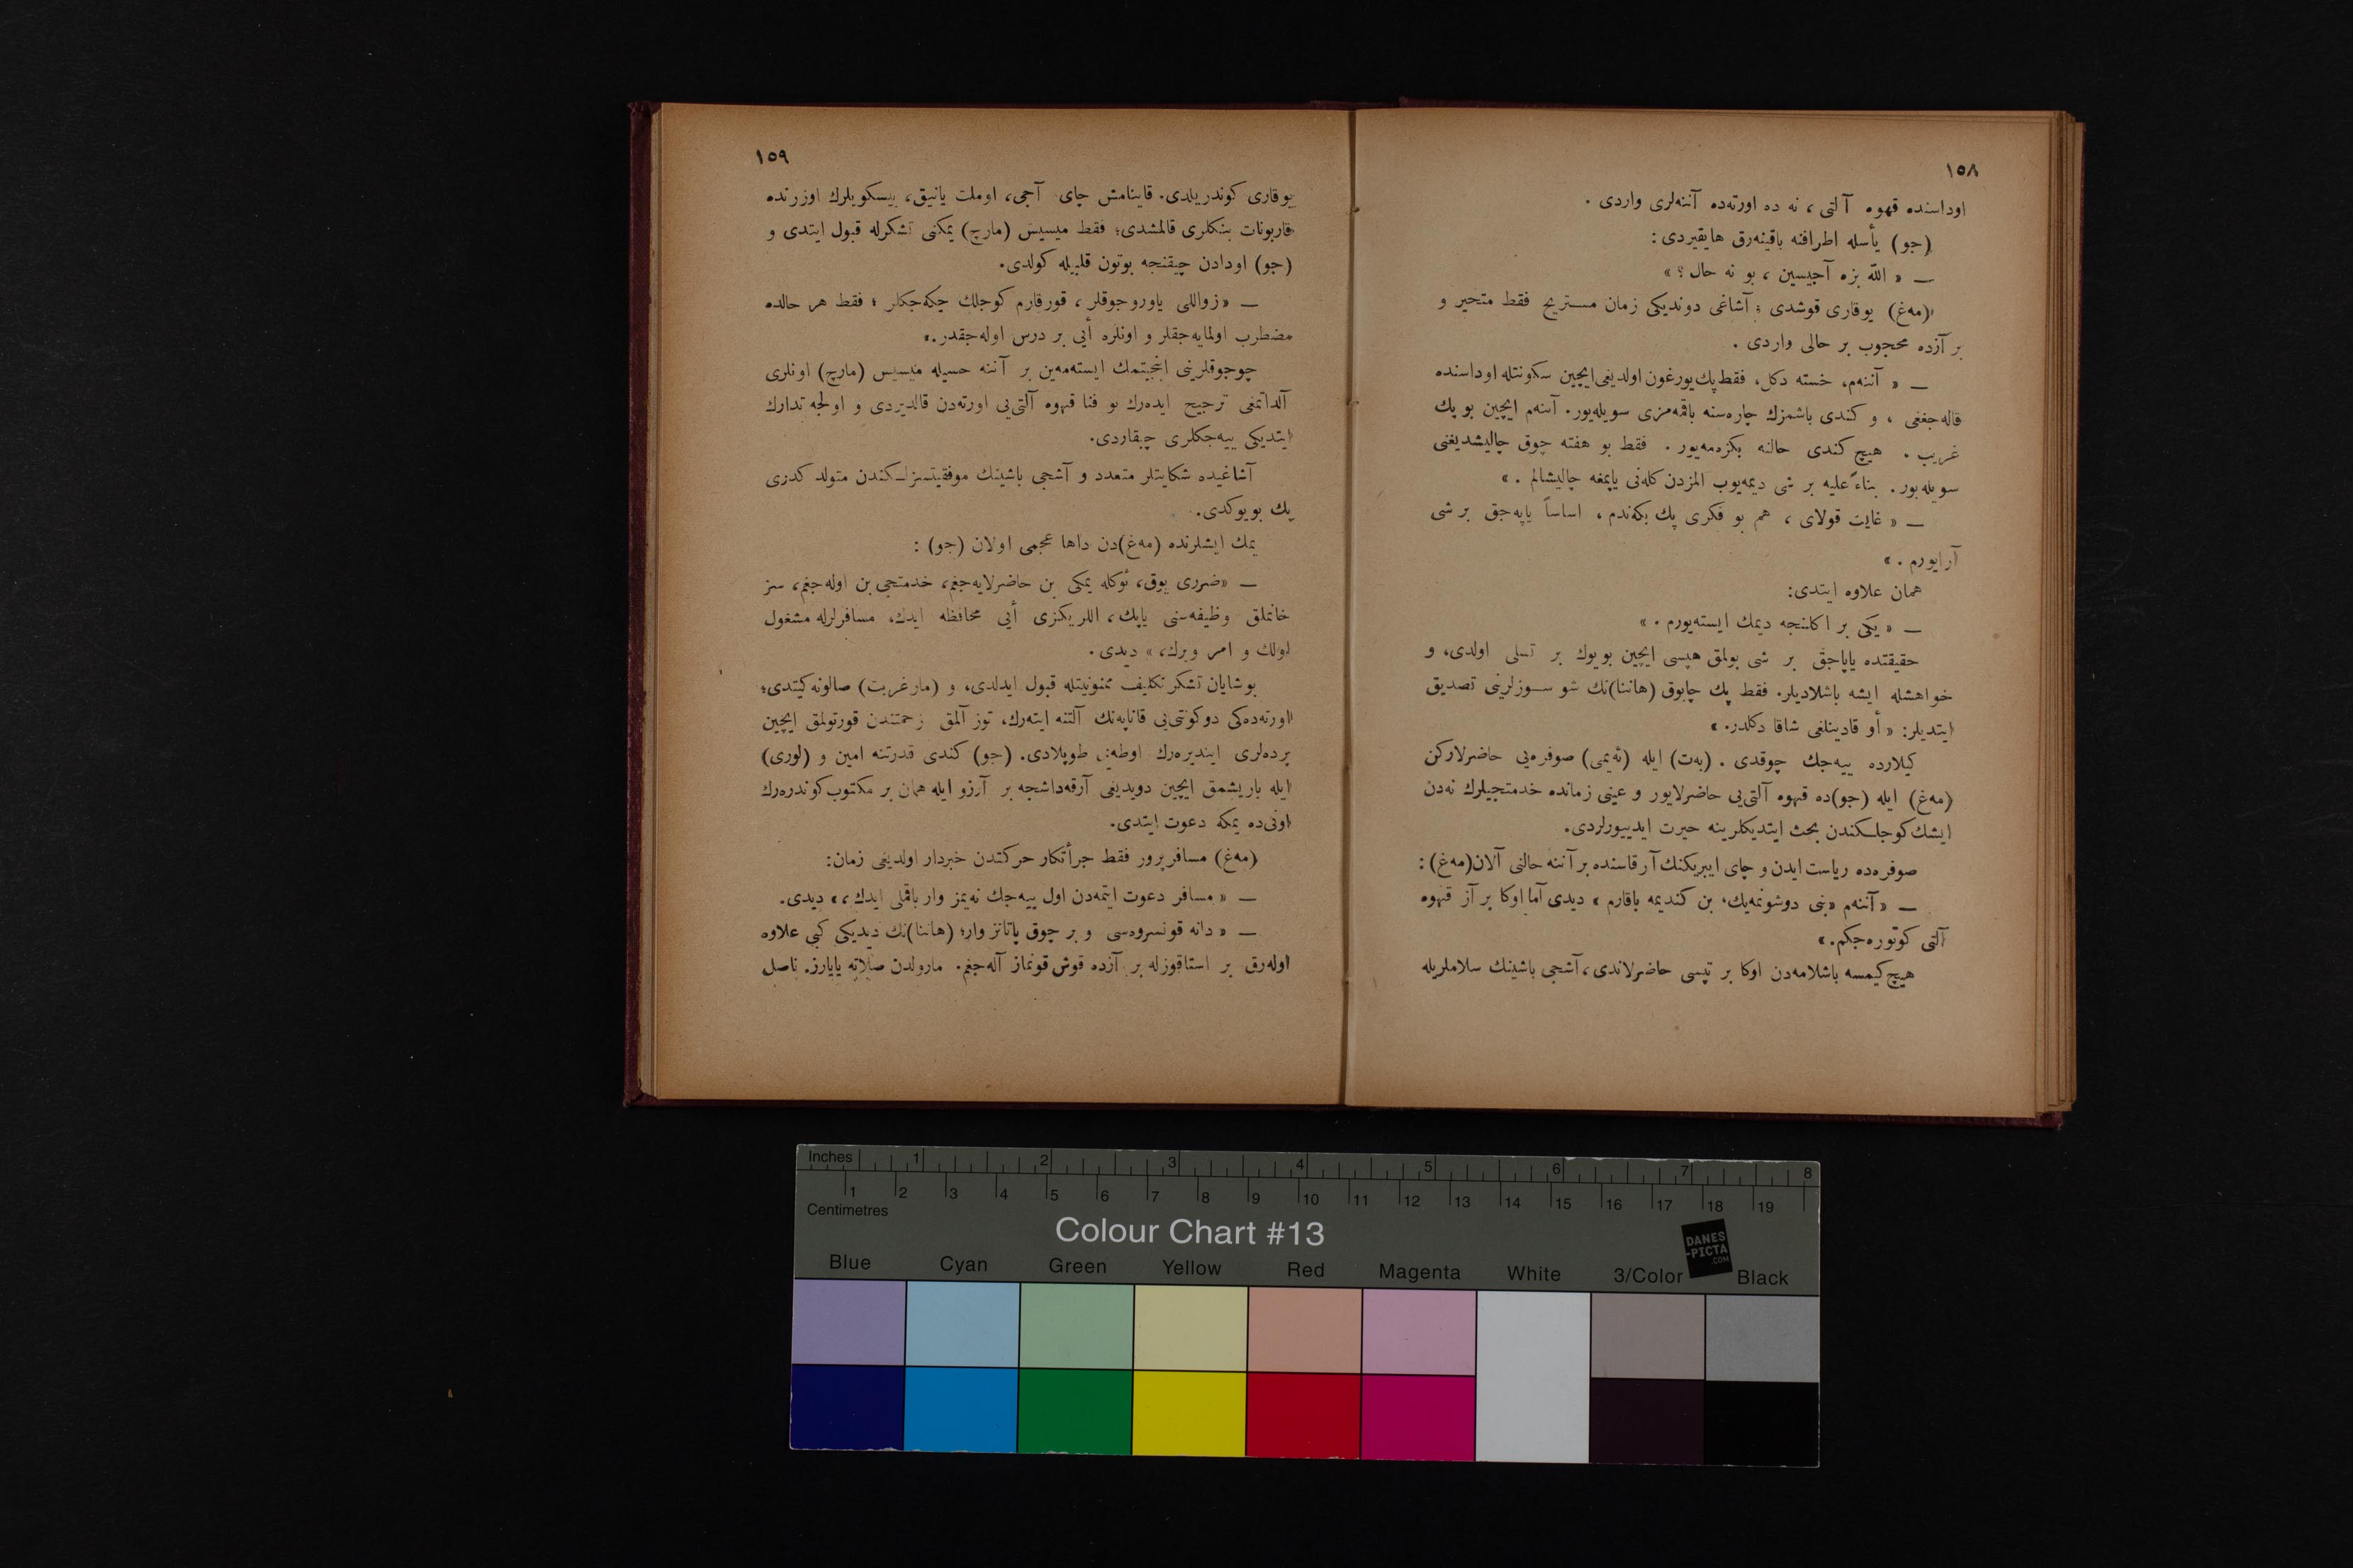 ١٥٨
اوداسنده قهوه آلتى ، نه ده اورته‌ده آننه‌لرى واردى .
(جو) يأسله اطرافنه باقينه‌رق هايقيردى :
— « الله بزه آجيسين ، بو نه حال ؟ »
(مه‌غ) يوقارى قوشدى ؛ آشاغى دونديكى زمان مستريح فقط متحير و
بر آزده محجوب بر حالى واردى .
— « آننه‌م، خسته دكل، فقط پك يورغون اولديغى ايچين سكونتله اوداسنده
قاله‌جغنى ، و كندى باشمزك چاره‌سنه باقمه‌مزى سويله‌يور. آننه‌م ايچين بو پك
غريب . هيچ كندى حالنه بكزه‌مه‌يور . فقط بو هفته چوق چاليشديغنى
سويله‌يور. بناءً عليه بر شى ديمه‌يوب المزدن كله‌نى ياپمغه چاليشالم . »
— « غايت قولاى ، هم بو فكرى پك بكه‌ندم ، اساساً ياپه‌جق بر شى
آرايورم . »
همان علاوه ايتدى:
— « يكى بر اكلنجه ديمك ايسته‌يورم . »
حقيقتده ياپاجق بر شى بولمق هپسى ايچين بويوك بر تسلى اولدى، و
خواهشله ايشه باشلاديلر. فقط پك چابوق (هاننا)نك شو سوزلرينى تصديق
ايتديلر: « أو قادينلغى شاقا دكلدر. »
كيلارده ييه‌جك چوقدى . (به‌ت) ايله (ئه‌يمى) صوفره‌يى حاضرلاركن
(مه‌غ) ايله (جو)ده قهوه آلتى‌يى حاضرلايور و عينى زمانده خدمتجيلرك نه‌دن
ايشك كوجلكندن بحث ايتديكلرينه حيرت ايدييورلردى.
صوفره‌ده رياست ايدن و چاى ايبريكنك آرقاسنده بر آننه حالنى آلان (مه‌غ) :
— « آننه‌م «بنى دوشونمه‌يك، بن كنديمه باقارم » ديدى آما اوكا بر آز قهوه
آلتى كوتوره‌جكم. »
هيچ كيمسه باشلامه‌دن اوكا بر تپسى حاضرلاندى، آشجى باشينك سلاملريله
١٥٩
يوقارى كوندريلدى. قاينامش چاى آجى، اوملت يانيق، بيسكويلرك اوزرنده
قاربونات بنكلرى قالمشدى؛ فقط ميسيس (مارچ) يمكنى تشكرله قبول ايتدى و
(جو) اودادن چيقنجه بوتون قلبيله كولدى.
— «زواللى ياوروجوقلر ، قورقارم كوجلك چكه‌جكلر ؛ فقط هر حالده
مضطرب اولمايه‌جقلر و اونلره أيى بر درس اوله‌جقدر.»
چوجوقلرينى اينجيتمك ايسته‌مه‌ين بر آننه حسيله ميسيس (مارچ) اونلرى
آلداتمغى ترجيح ايده‌رك بو فنا قهوه آلتى‌يى اورته‌دن قالديردى و اولجه تدارك
ايتديكى ييه‌جكلرى چيقاردى.
آشاغيده شكايتلر متعدد و آشجى باشينك موفقيتسزلكندن متولد كدرى
پك بويوكدى.
يمك ايشلرنده (مه‌غ)دن داها عجمى اولان (جو) :
— «ضررى يوق، ئوكله يمكى بن حاضرلايه‌جغم، خدمتجى بن اوله‌جغم، سز
خانملق وظيفه‌سنى ياپك، اللريكزى أيى محافظه ايدك، مسافرلرله مشغول
اولك و امر ويرك، » ديدى .
بو شايان تشكر تكليف ممنونيتله قبول ايدلدى، و (مارغريت) صالونه كيتدى؛
اورته‌ده‌كى دوكونتى‌يى قاناپه‌نك آلتنه ايته‌رك، توز آلمق زحمتندن قورتولمق ايچين
پرده‌لرى اينديره‌رك اوطه‌يى طوپلادى. (جو) كندى قدرتنه امين و (لورى)
ايله باريشمق ايچين دويديغى آرقه‌داشجه بر آرزو ايله همان بر مكتوب كوندره‌رك
اونى‌ده يمكه دعوت ايتدى.
(مه‌غ) مسافرپرور فقط جرأتكار حركتدن خبردار اولديغى زمان:
— « مسافر دعوت ايتمه‌دن اول ييه‌جك نه‌يمز وار باقملى ايدك،» ديدى.
— « دانه قونسروه‌سى و بر چوق پاتاتز وار؛ (هاننا)نك ديديكى كبى علاوه
اوله‌رق بر استاقوزله بر آزده قوش قونماز آله‌جغم. مارولدن صلاته ياپارز. ناصل
Inches 1 2 3 4 5 6 7 8
1 2 3 4 5 6 7 8 9 10 11 12 13 14 15 16 17 18 19
Centimetres
Colour Chart #13
DANES
-PICTA
.COM
Blue Cyan Green Yellow Red Magenta White 3/Color Black